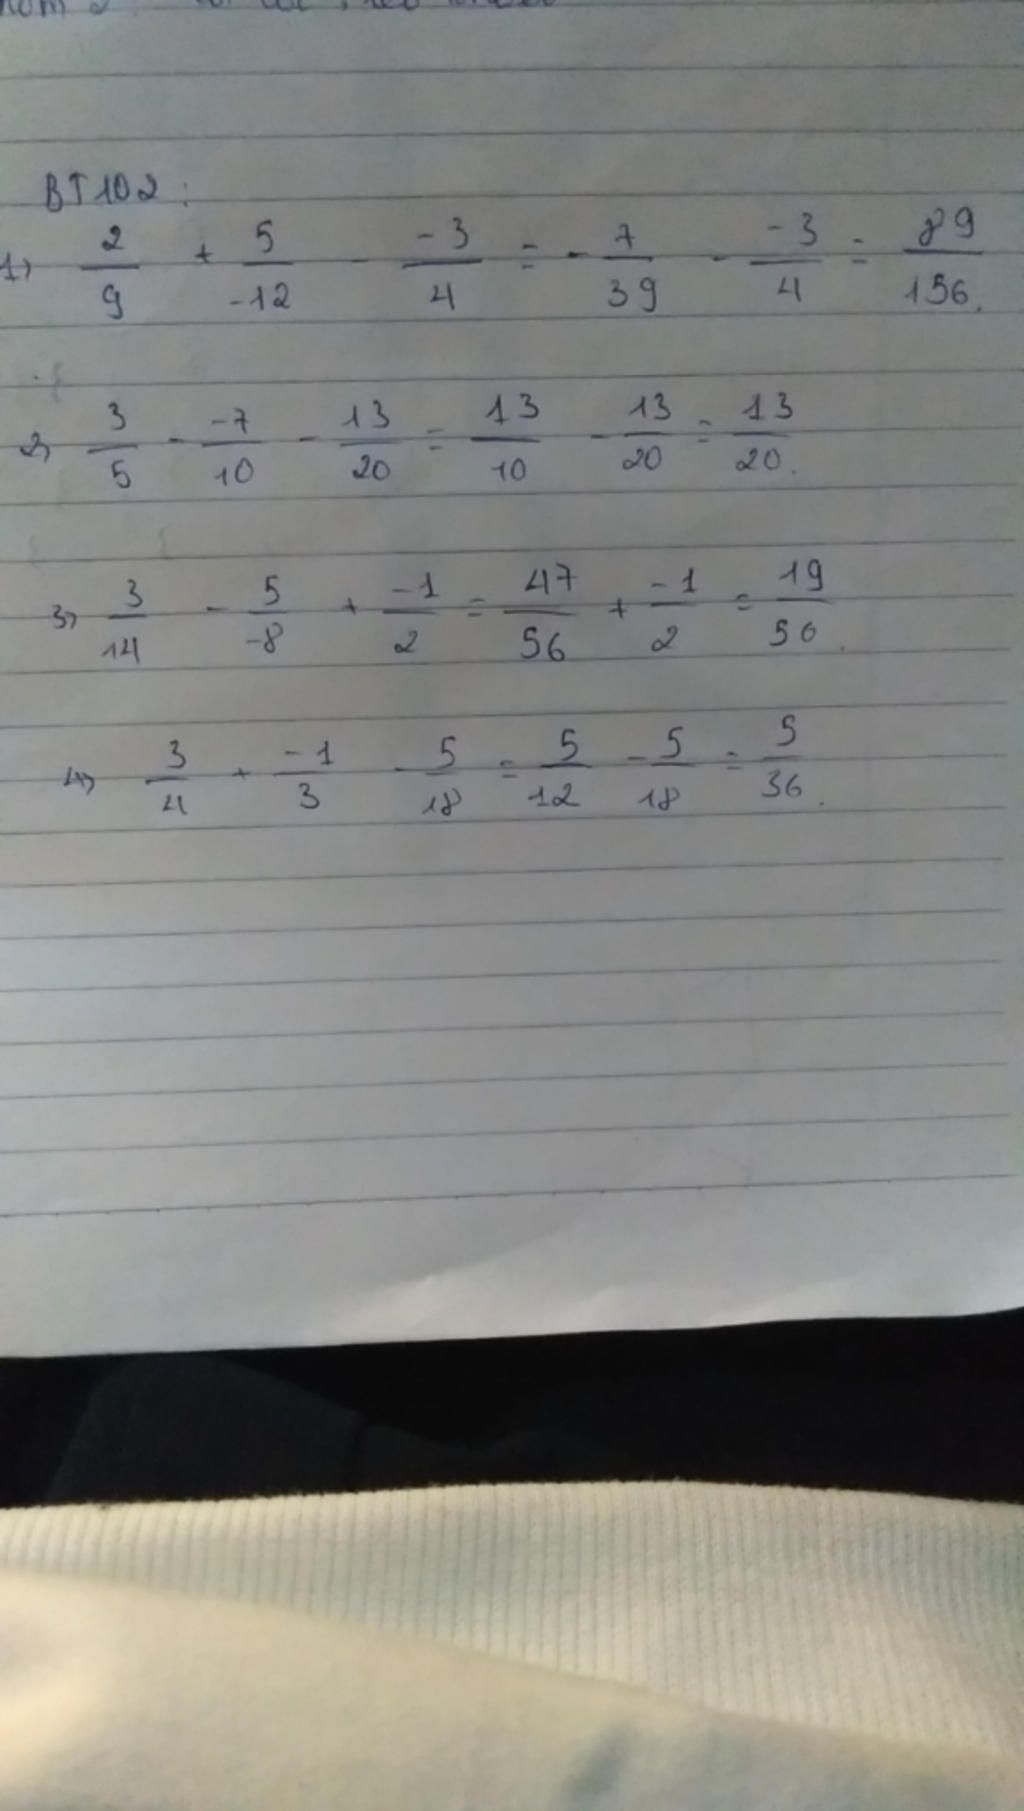 BT102:
1) 2/9 + 5/-12 - -3/4 = - 7/39 - -3/4 = 89/156.
2) 3/5 - -7/10 - 13/20 = 13/10 - 13/20 = 13/20.
3) 3/14 - 5/-8 + -1/2 = 47/56 + -1/2 = 19/56.
4) 3/4 + -1/3 - 5/18 = 5/12 - 5/18 = 5/36.